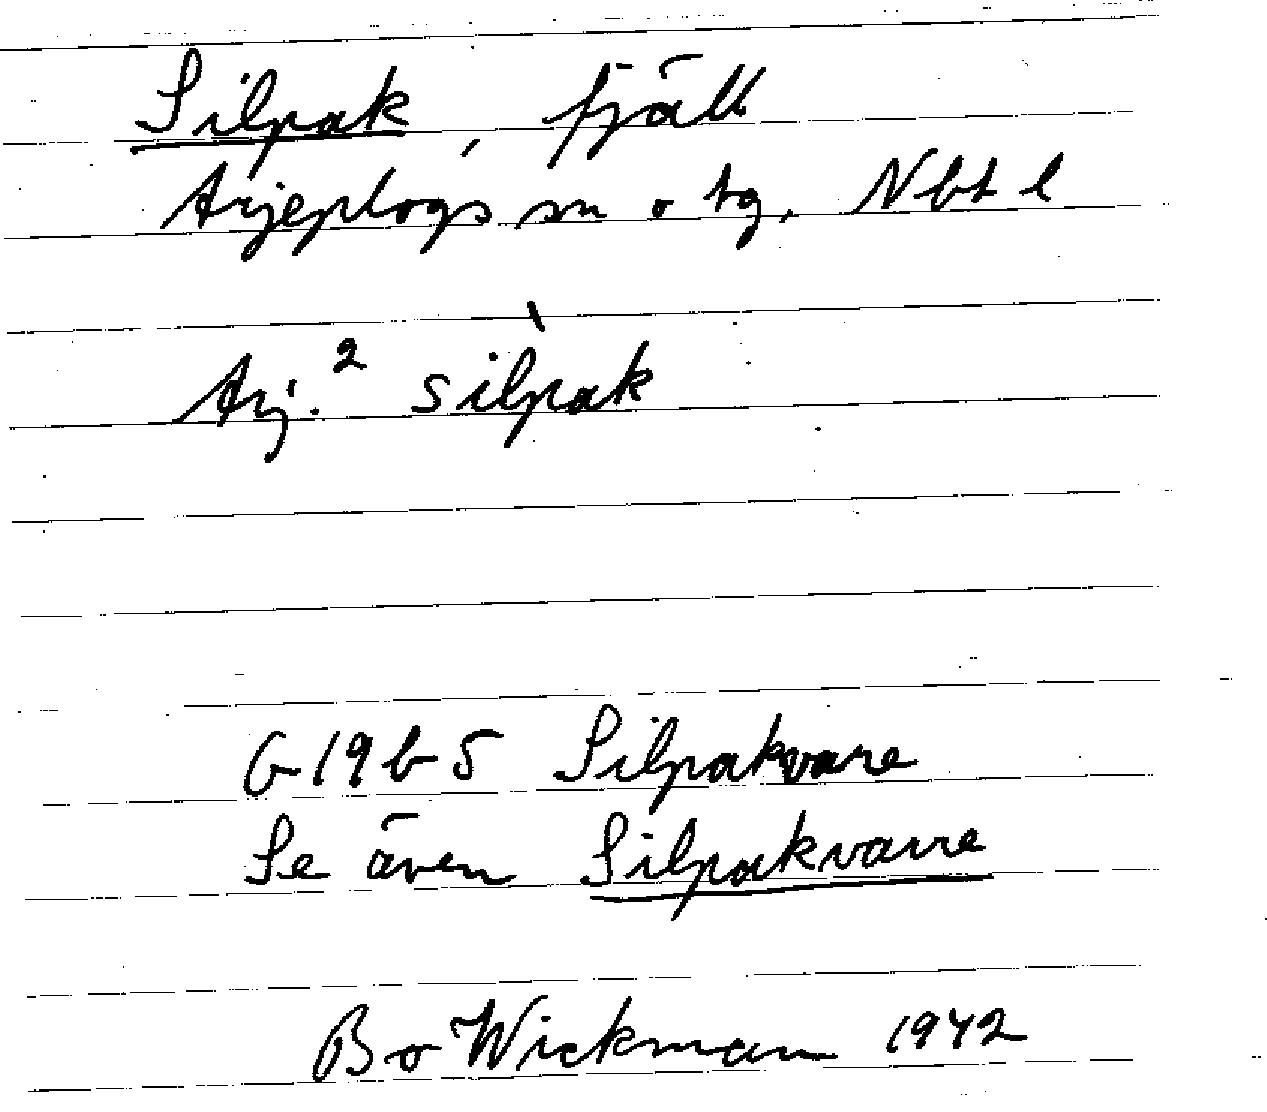 Silpak, fjäll
Arjeplogs sn o tg, Nbt l
Arj.² silˋpak
G19b5 Silpakvare
Se även Silpakvarre
Bo Wickman 1942